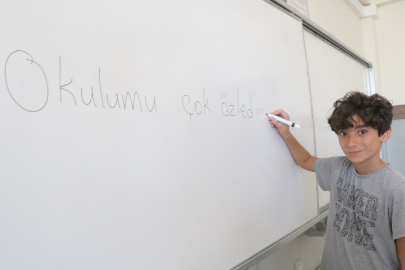 Okulumu çok özledi